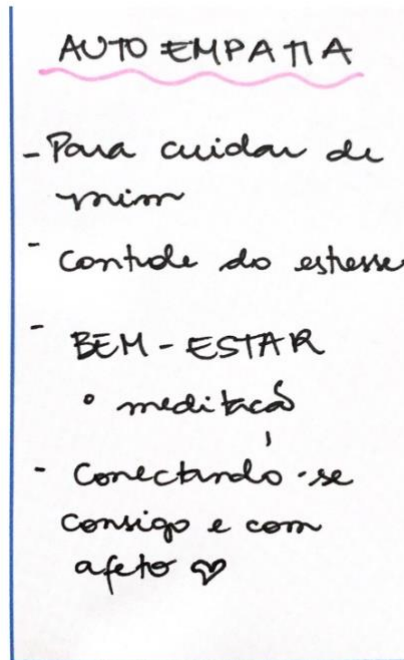 AUTO EMPATIA
- Para cuidar de
mim
- controle do estresse
- BEM - ESTAR
° meditação
- Conectando-se
consigo e com
afeto ♡